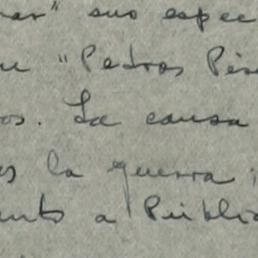 ar" suo espec
u "Pedros Pés
os. La causa
es la guerra;
ants a Públic